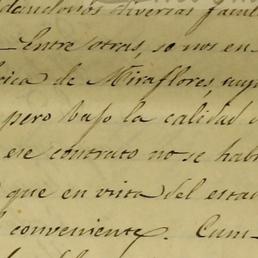 dandonos diversas facul
Entre otras, se nos en-
rica de Miraflores, cuy
pero bajo la calidad d
ese contrato no se hab
que en vista del esta
conveniente. Cum-